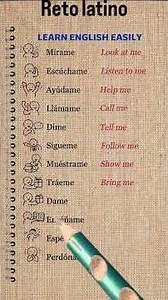 Reto latino
LEARN ENGLISH EASILY
Mírame Look at me
Escúchame Listen to me
Ayúdame Help me
Llámame Call me
Dime Tell me
Sígueme Follow me
Muéstrame Show me
Tráeme Bring me
Dame